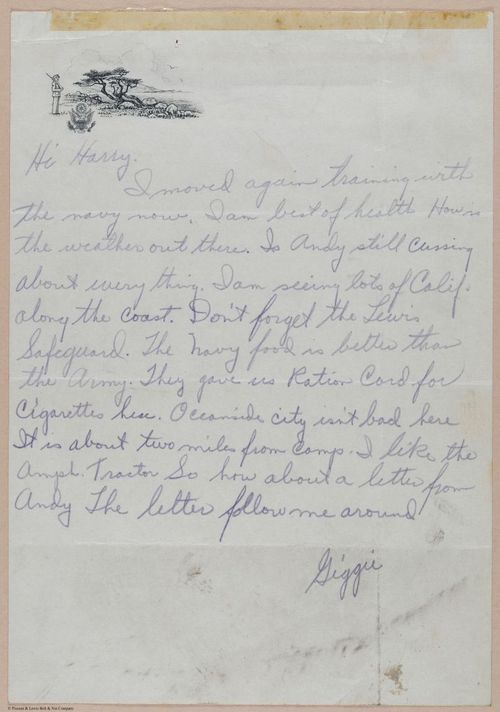 Hi Harry.
I moved again training with
the navy now. I am best of health How is
the weather out there. Is Andy still cussing
about every thing. I am seeing lots of Calif.
along the coast. Don't forget the Lewis
Safeguard. The Navy food is better than
the Army. They gave us Ration Card for
Cigarettes here. Oceanside city isn't bad here
It is about two miles from Camp. I like the
Amph. Tractor So how about a letter from
Andy The letter follow me around
Giggie
© Pheoll & Lewis Bolt & Nut Company